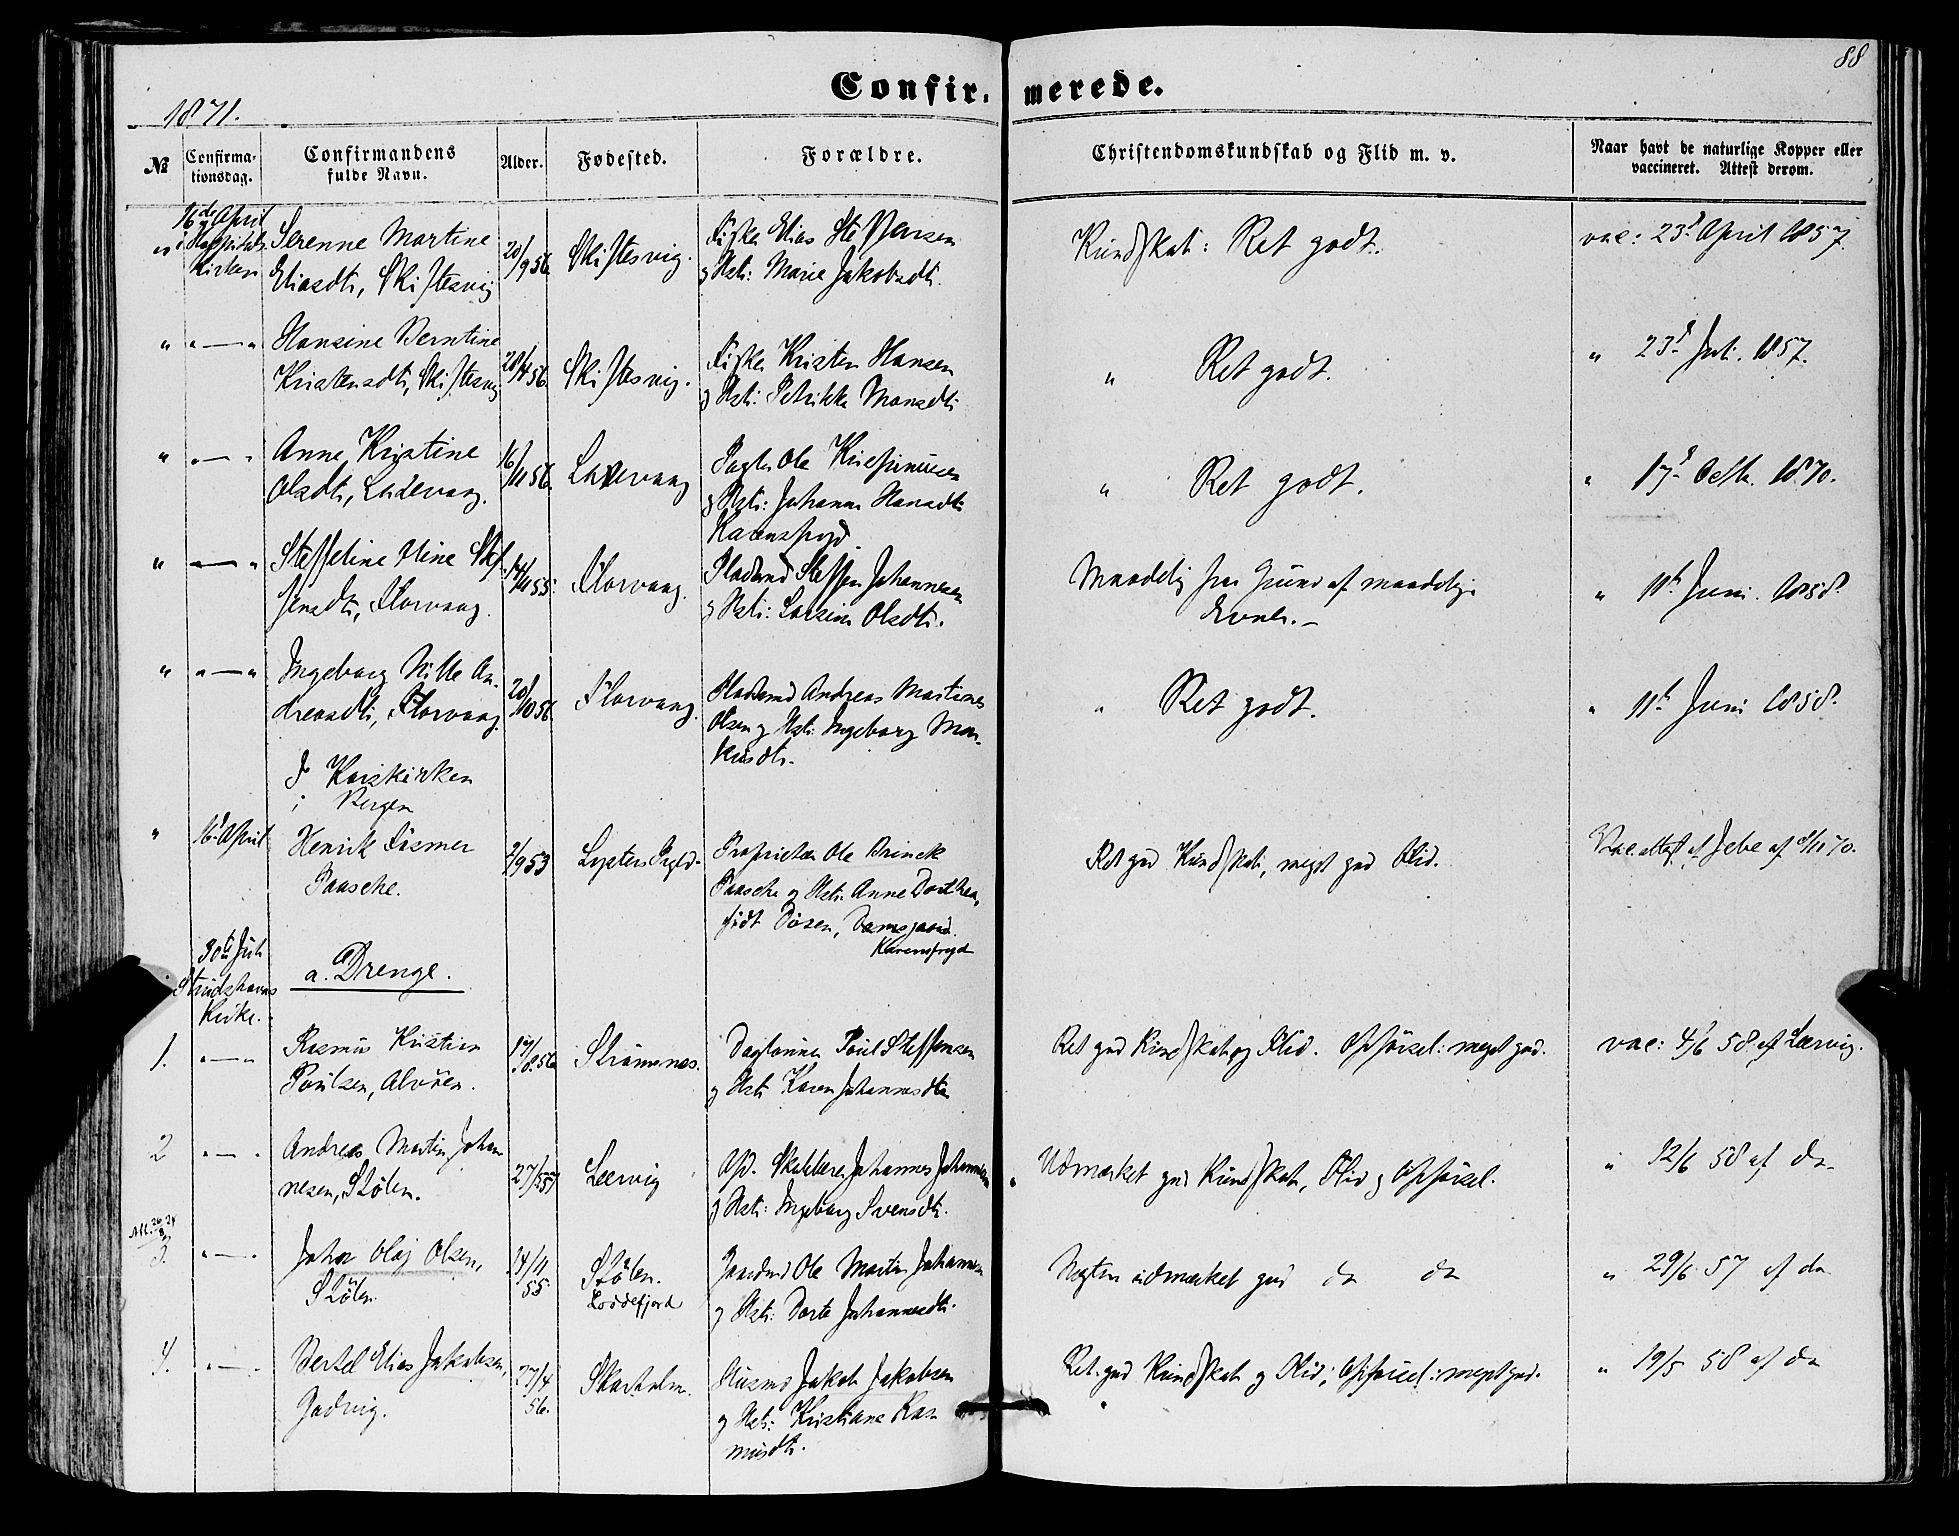 88
Confir- merede.
1871.
№
Confirma-
tionsdag.
Confirmandens
fulde Navn.
Alder.
Fødested.
Forældre.
Christendomskundskab og Flid m. v.
Naar havt de naturlige Kopper eller
vaccineret. Attest derom.
16de April
i Hospitals
Kirken
Serenne Martine
Eliasdtr, Skiftesvig
20/9 56.
Skiftesvig.
Fisker Elias Steffensen
og Hstr: Marie Jakobsdtr.
Kundskab: Ret godt.
vac: 23d April 1857.
" " — "
Hansine Berntine
Kristensdtr, Skiftesvig
28/4 56.
Skiftesvig.
Fisker Kristen Hansen
og Hstr: Petrikke Monsdtr
" Ret godt.
" 23d Juli. 1857.
" " — "
Anne Kristine
Olsdtr, Ladevaag.
16/11 56.
Ladevaag
Ole
og Hstr: Johanne Hansdtr
Karensfryd.
" Ret godt.
" 17d Octb. 1870.
" " — "
Steffeline Stine Stef-
fensdtr, Florvaag.
14/11 55.
Florvaag.
Pladsmd Steffen Johannesen
og Hstr: Larsine Olsdtr.
Maadelig paa Grund af maadelige
Evner. —
" 11te Juni. 1858.
" " — "
Ingeborg Nille An-
dreasdtr, Florvaag.
20/10 56.
Florvaag.
Pladsmd Andreas Martines
Olsen og Hstr: Ingeborg Mar-
kusdtr.
" Ret godt.
" 11te Juni 1858.
I Korskirken
i Bergen
" 16d April
Henrik Fasmer
Paasche.
2/9 53
Lysters Prgld.
Proprietær Ole Brinck
Paasche og Hstr: Anne Dorthea,
født Døsen, Damsgaard.
Karensfryd
Ret god Kundskab, meget god Flid.
Vac. attest af Jebe af 8/11 70.
30te Juli
Strudshavns
Kirke.
a. Drenge.
1. " — "
Rasmus Kristian
Poulsen, Alvøen.
19/8 56
Strømsnes.
Daglønner Poul Steffensen
og Hstr Karen Johannesdtr
Ret god Kundskab og Flid. Opførsel: meget god.
vac: 4/6 58 af Leervig.
2 " — "
Andreas Martin Johan-
nesen, Stølen.
Leervig
Johannes Johannesen
og Hstr: Ingeborg Svensdtr.
Udmærket god Kundskab, Flid og Opførsel.
" 12/6 58 af do
Att. 26/8 74
3. " — "
Johan Olaj Olsen,
Stølen.
14/11
55
Stølen.
Loddefjord
Gaardmd Ole Martin Johannesen
og Hstr: Dorte Johannesdtr.
Næsten udmærket god do do
" 29/6 57 af do
4. " — "
Bertel Elias Jakobsen,
Gadvig.
27/4
56.
Skarholm.
Husmd Jakob Jakobsen
og Hstr: Kristiane Ras-
musdtr.
Ret god Kundskab og Flid; Opførsel: meget god.
" 19/5 58 af do